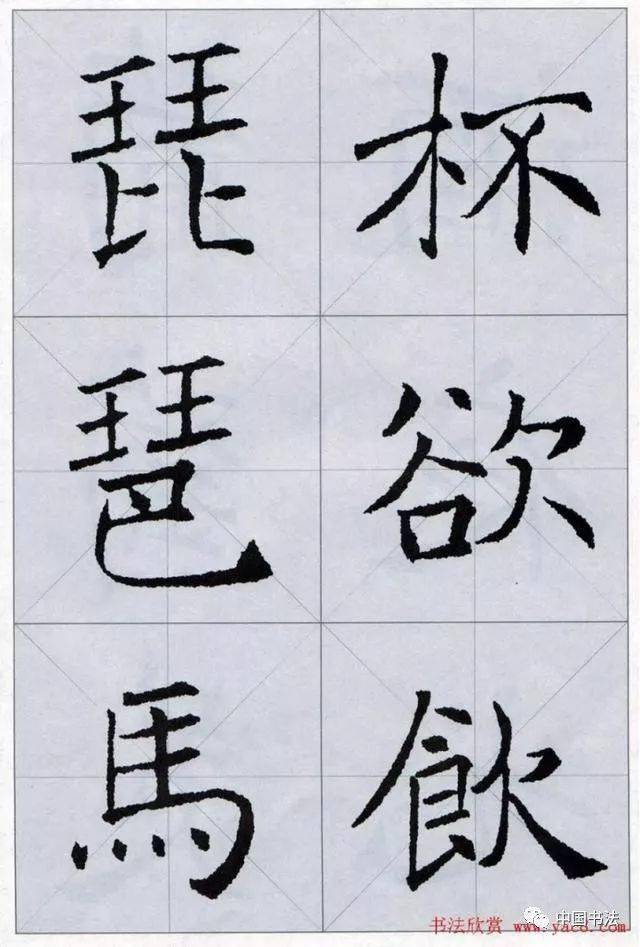 杯欲飲
琵琶馬
中国书法
书法欣赏 www.yac8.com